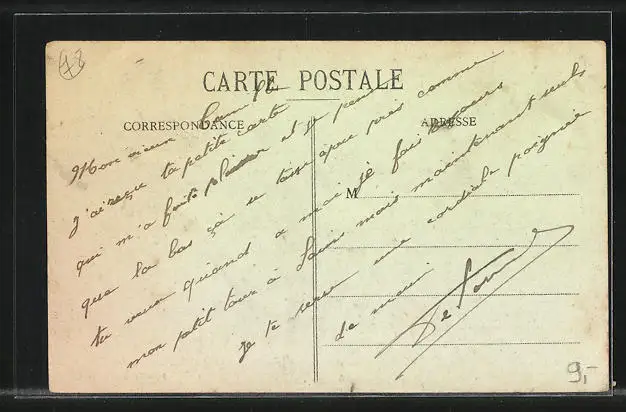 78
CARTE POSTALE
CORRESPONDANCE
ADRESSE
M
Mon vieux
J'ai reçu ta petite carte
qui m'a fait plaisir et je pense
que la bas ça se passe à peu près comme
tu veux quand a moi je fais toujours
mon petit tour à mais maintenant seuls
Je te serre une cordiale poignée
de main
9,-